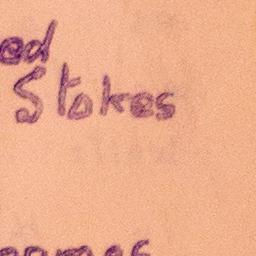 ed
Stokes